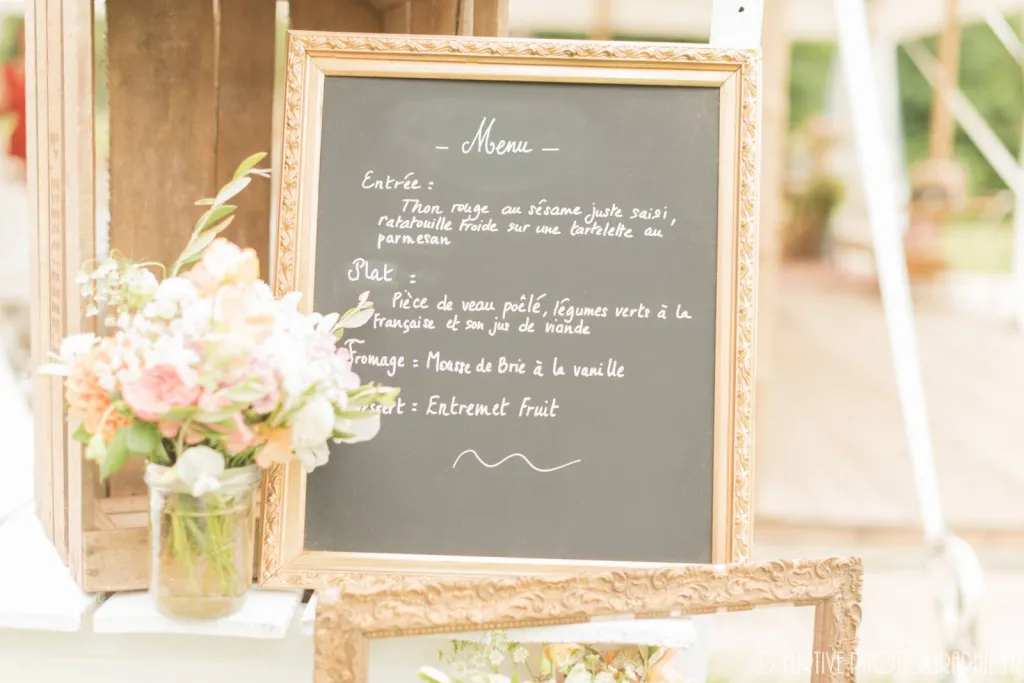 – Menu –
Entrée :
Thon rouge au sésame juste saisi,
ratatouille froide sur une tartelette au
parmesan
Plat :
Pièce de veau poêlé, légumes verts à la
Française et son jus de viande
Fromage : Mousse de Brie à la vanille
Dessert : Entremet Fruit